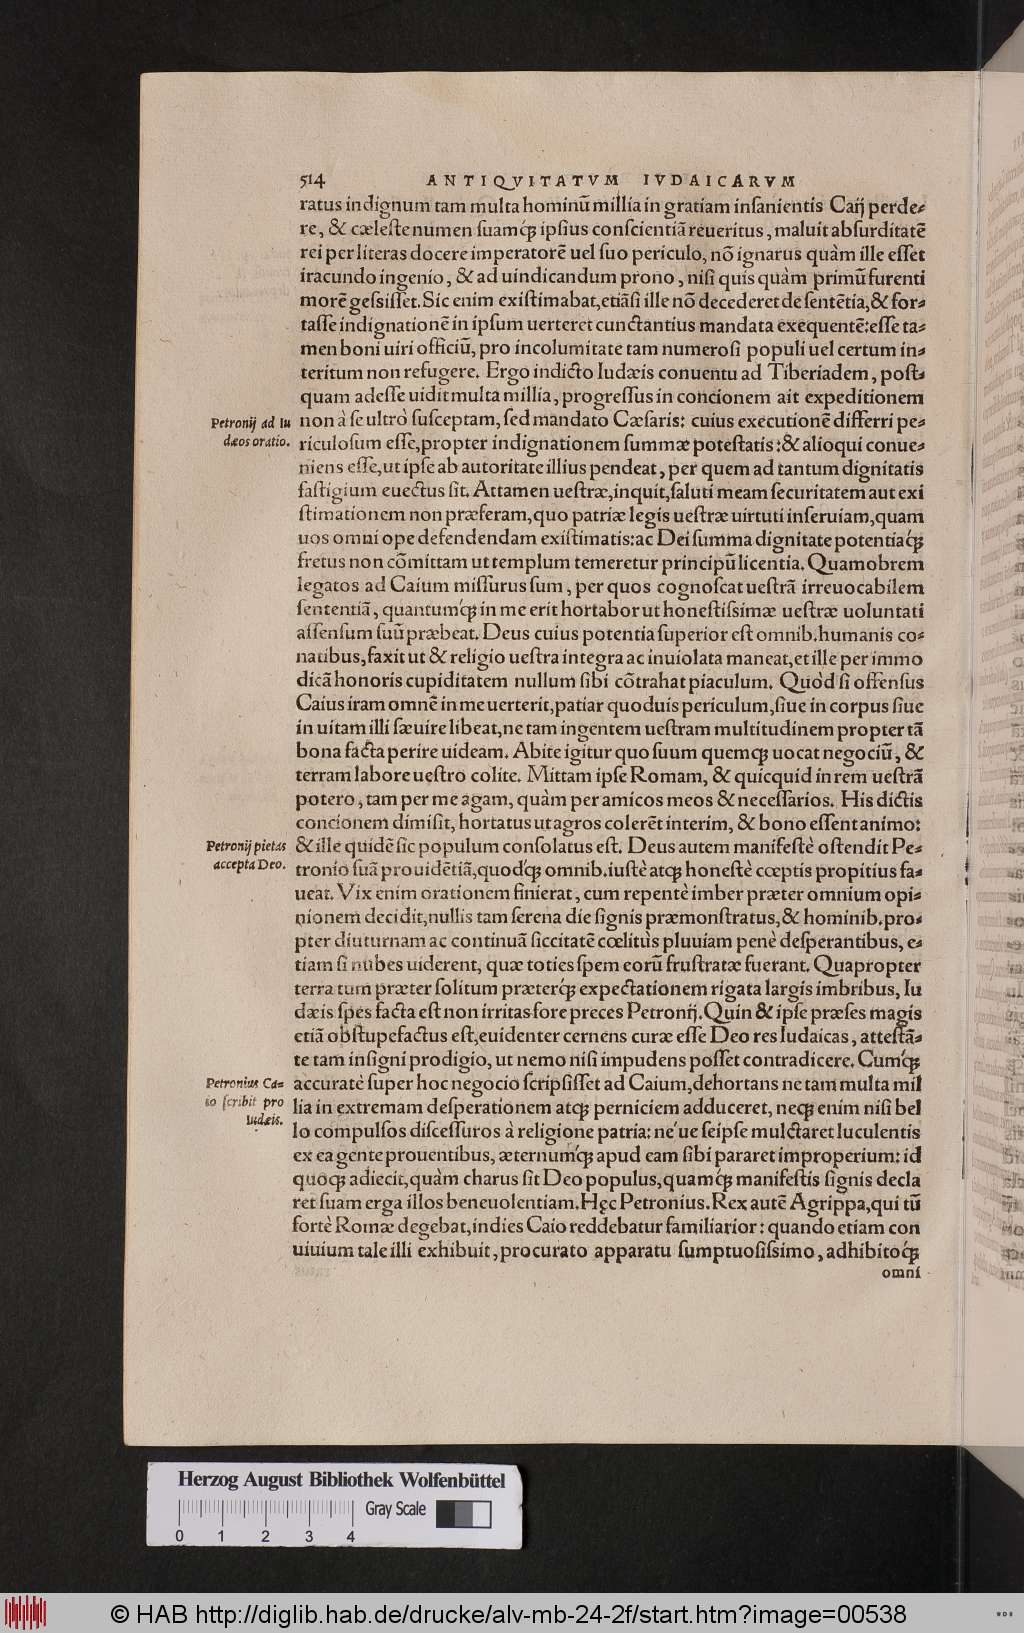 514 ANTIQVITATVM IVDAICARVM
ratus indignum tam multa hominũ millia in gratiam insanientis Caij perde-
re, & cæleste numen suamq́ꝫ ipsius conscientiã reueritus, maluit absurditatẽ
rei per literas docere imperatorẽ uel suo periculo, nõ ignarus quàm ille esset
iracundo ingenio, & ad uindicandum prono, nisi quis quàm primũ furenti
morẽ gessisset. Sic enim existimabat, etiãsi ille nõ decederet de sentẽtia, & for-
tasse indignationẽ in ipsum uerteret cunctantius mandata exequentẽ: esse ta-
men boni uiri officiũ, pro incolumitate tam numerosi populi uel certum in-
teritum non refugere. Ergo indicto Iudæis conuentu ad Tiberiadem, post-
quam adesse uidit multa millia, progressus in concionem ait expeditionem
Petronij ad Iu
dæos oratio.
non à se ultrò susceptam, sed mandato Cæsaris: cuius executionẽ differri pe-
riculosum esse, propter indignationem summæ potestatis: & alioqui conue-
niens esse, ut ipse ab autoritate illius pendeat, per quem ad tantum dignitatis
fastigium euectus sit. Attamen uestræ, inquit, saluti meam securitatem aut exi
stimationem non præferam, quo patriæ legis uestræ uirtuti inseruiam, quam
uos omni ope defendendam existimatis: ac Dei summa dignitate potentiaq́ꝫ
fretus non cõmittam ut templum temeretur principũ licentia. Quamobrem
legatos ad Caium missurus sum, per quos cognoscat uestrã irreuocabilem
sententiã, quantumq́ꝫ in me erit hortabor ut honestissimæ uestræ uoluntati
assensum suũ præbeat. Deus cuius potentia superior est omnib. humanis co-
natibus, faxit ut & religio uestra integra ac inuiolata maneat, et ille per immo
dicã honoris cupiditatem nullum sibi cõtrahat piaculum. Quòd si offensus
Caius iram omnẽ in me uerterit, patiar quoduis periculum, siue in corpus siue
in uitam illi sæuire libeat, ne tam ingentem uestram multitudinem propter tã
bona facta perire uideam. Abite igitur quo suum quemqꝫ uocat negociũ, &
terram labore uestro colite. Mittam ipse Romam, & quicquid in rem uestrã
potero, tam per me agam, quàm per amicos meos & necessarios. His dictis
concionem dimisit, hortatus ut agros colerẽt interim, & bono essent animo:
Petronij pietas
accepta Deo.
& ille quidẽ sic populum consolatus est. Deus autem manifestè ostendit Pe-
tronio suã prouidẽtiã, quodq́ꝫ omnib. iustè atqꝫ honestè cœptis propitius fa-
ueat. Vix enim orationem finierat, cum repentè imber præter omnium opi-
nionem decidit, nullis tam serena die signis præmonstratus, & hominib. pro-
pter diuturnam ac continuã siccitatẽ cœlitùs pluuiam penè desperantibus, e-
tiam si nubes uiderent, quæ toties spem eorũ frustratæ fuerant. Quapropter
terra tum præter solitum præterq́ꝫ expectationem rigata largis imbribus, Iu
dæis spes facta est non irritas fore preces Petronij. Quin & ipse præses magis
etiã obstupefactus est, euidenter cernens curæ esse Deo res Iudaicas, attestã-
te tam insigni prodigio, ut nemo nisi impudens posset contradicere. Cumq́ꝫ
Petronius Ca-
io scribit pro
Iudæis.
accuratè super hoc negocio scripsisset ad Caium, dehortans ne tam multa mil
lia in extremam desperationem atqꝫ perniciem adduceret, neqꝫ enim nisi bel
lo compulsos discessuros à religione patria: ne'ue seipse mulctaret luculentis
ex ea gente prouentibus, æternumq́ꝫ apud eam sibi pararet improperium: id
quoqꝫ adiecit, quàm charus sit Deo populus, quamq́ꝫ manifestis signis decla
ret suam erga illos beneuolentiam. Hęc Petronius. Rex autẽ Agrippa, qui tũ
fortè Romæ degebat, indies Caio reddebatur familiarior: quando etiam con
uiuium tale illi exhibuit, procurato apparatu sumptuosissimo, adhibitoq́ꝫ
omni
Herzog August Bibliothek Wolfenbüttel
Gray Scale
0 1 2 3 4
© HAB http://diglib.hab.de/drucke/alv-mb-24-2f/start.htm?image=00538